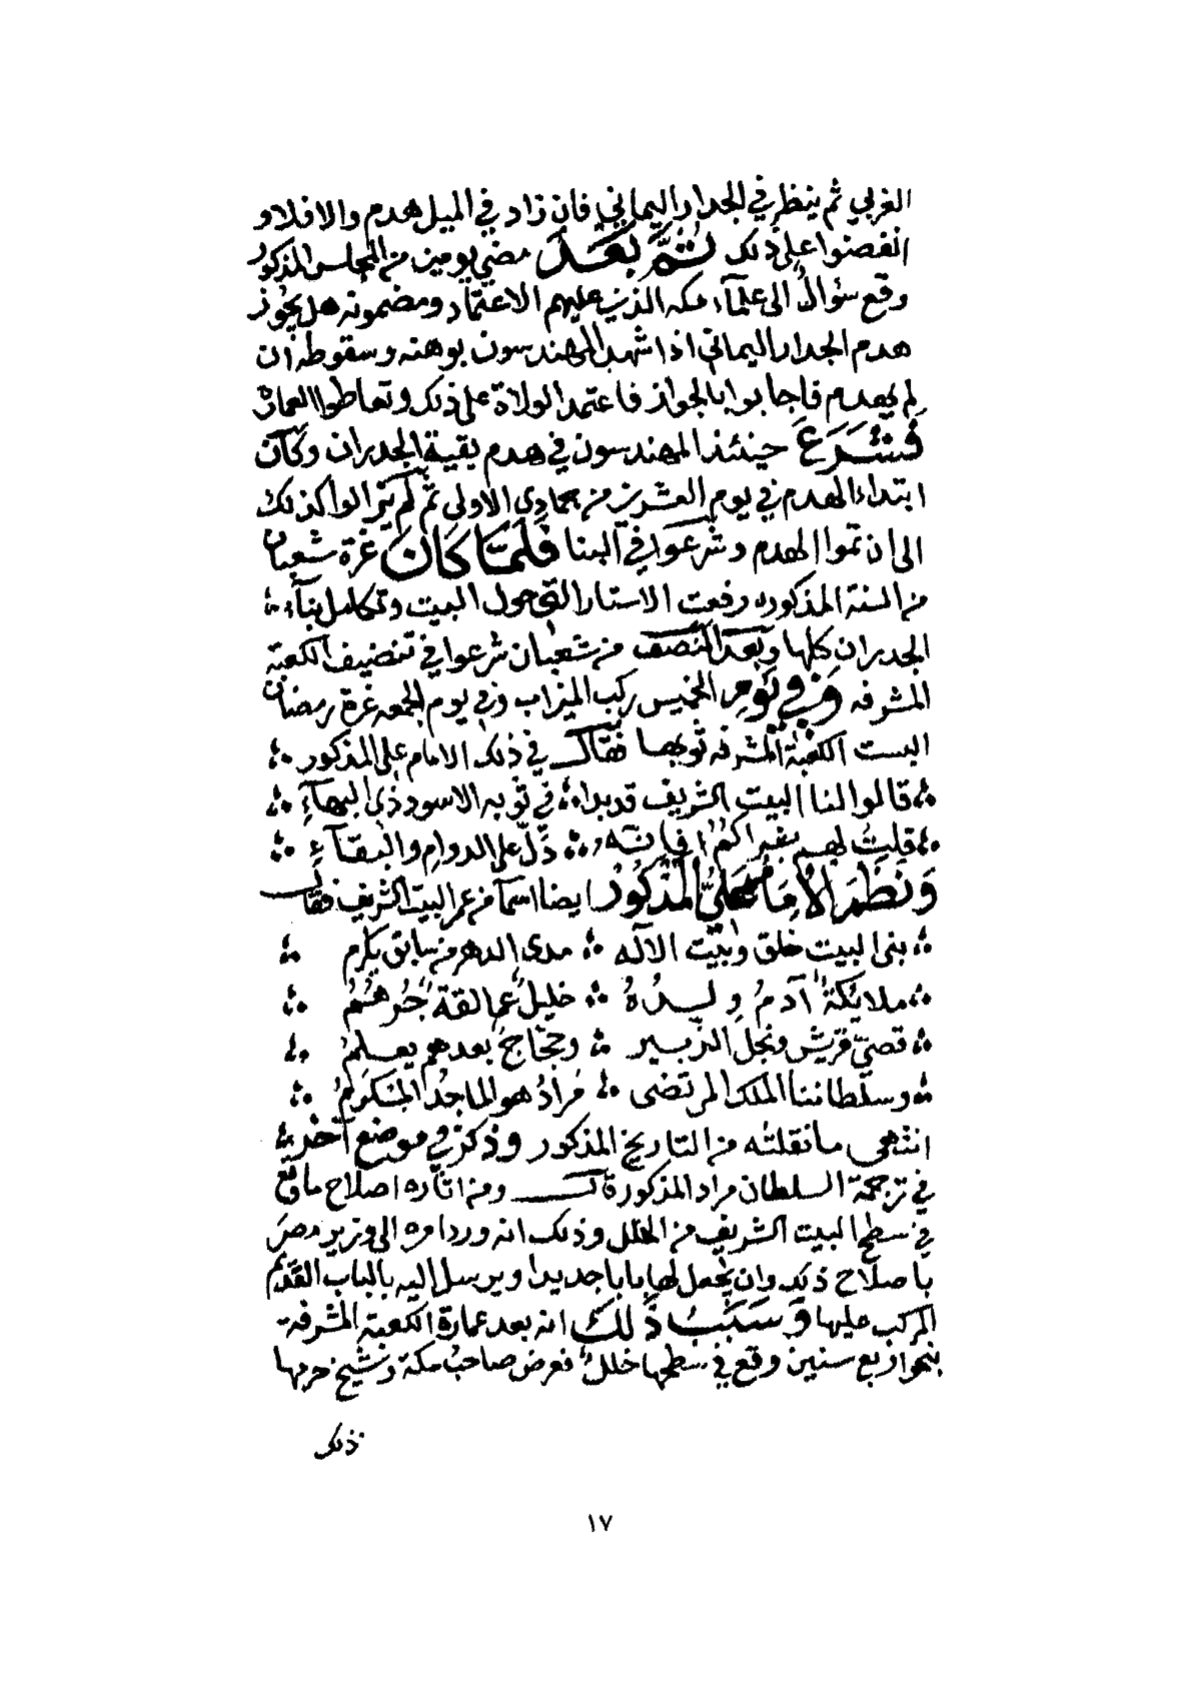 الغربي ثم ينظر في الجدار اليماني فان زاد في الميل هدم والا فلا و
انفصنوا على ذلك ثُمَّ بَعْدَ مضي يومين من المجلس المذكور
وقع سؤالٌ الى علمآء مكه الذين عليهم الاعتماد ومضمونه هل يجوز
هدم الجدار اليماني اذا شهد المهندسون بوهنه وسقوطه ان
لم يهدم فاجابوا بالجواز فاعتمد الولاة على ذلك وتعاطوا العمارة
فَشَرَعَ حينئذ المهندسون في هدم بقية الجدران وكان
ابتداء الهدم في يوم العشرين من جمادي الاولى ثم لم يزالوا كذلك
الى ان تموا الهدم وشرعوا في البنا فَلَمَّا كَانَ غرة شعبان
من السنة المذكوره رفعت الاستار التي حول البيت وتكامل بنآء
الجدران كلها وبعد النصف من شعبان شرعوا في تنضيف الكعبة
المشرفه وَفِي يَوْمِ الخميس ركب الميزاب وفي يوم الجمعه غرة رمضان
البست الكعبة المشرفه ثوبها فقال في ذلك الامام علي المذكور
قالوا لنا البيت الشريف قد بدا في ثوبه الاسود ذي البهآءِ
قلت لهم بشراكم فإنه دَلَّ على الدوام والبقآءِ
وَنَظَمَ الْاِمَامُ عَلِيُّ الْمَذْكُورُ ايضا اسمآ من عمر البيت الشريف فقال
بنى البيت خلق وبيت الآله مدى الدهر من سابق يكرم
ملايكةٌ آدمُ ولدُهُ خليلٌ عمالقةٌ جُرهُمُ
قصيّ قريش ونجل الزبير وحجاجُ بعدهم يعلمُ
وسلطاننا الملك المرتضى مُرادُ هو الماجدُ المنكرمُ
انتهى ما نقلته من التاريخ المذكور وذكر في موضع آخر
في ترجمة السلطان مراد المذكور قال ومن اثاره اصلاح ما وقع
في سطح البيت الشريف من الخلل وذلك انه ورد امره الى وزير مصر
باصلاح ذلك وان يجعل لها بابا جديدا ويرسل اليه بالباب القديم
المركب عليها وَسَبَبُ ذٰلِكَ انه بعد عمارة الكعبة المشرفة
بنحو اربع سنين وقع في سطحها خللٌ فعرض صاحبُ مكة وشيخ حرمها
ذلك
١٧